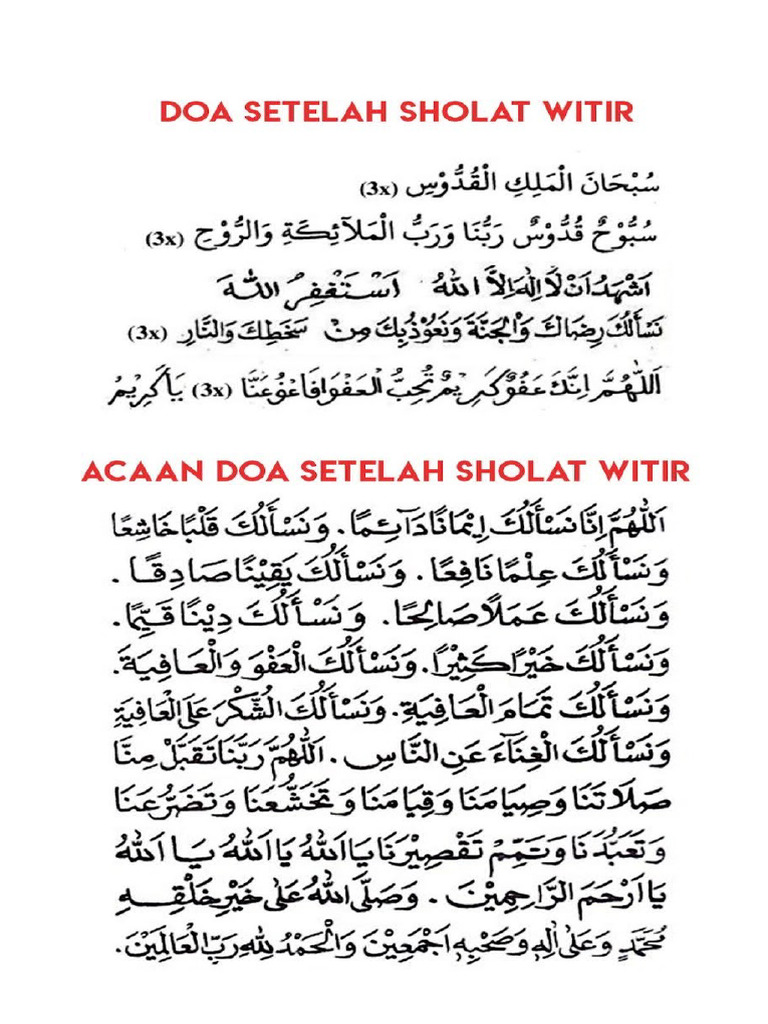 DOA SETELAH SHOLAT WITIR
سُبْحَانَ الْمَلِكِ الْقُدُّوْسِ (3x)
سُبُّوْحٌ قُدُّوْسٌ رَبُّنَا وَرَبُّ الْمَلَآئِكَةِ وَالرُّوْحِ (3x)
اَشْهَدُ اَنْ لَا اِلٰهَ اِلَّا اللهُ اَسْتَغْفِرُ اللهَ
نَسْأَلُكَ رِضَاكَ وَالْجَنَّةَ وَنَعُوْذُبِكَ مِنْ سَخَطِكَ وَالنَّارِ (3x)
اَللّٰهُمَّ اِنَّكَ عَفُوٌّ كَرِيْمٌ تُحِبُّ الْعَفْوَا فَاعْفُ عَنَّا (3x) يَاكَرِيْمُ
ACAAN DOA SETELAH SHOLAT WITIR
اَللّٰهُمَّ اِنَّا نَسْأَلُكَ اِيْمَانًا دَآئِمًا. وَنَسْأَلُكَ قَلْبًا خَاشِعًا
وَنَسْأَلُكَ عِلْمًا نَافِعًا. وَنَسْأَلُكَ يَقِيْنًا صَادِقًا.
وَنَسْأَلُكَ عَمَلًا صَالِحًا. وَنَسْأَلُكَ دِيْنًا قَيِّمًا.
وَنَسْأَلُكَ خَيْرًا كَثِيْرًا. وَنَسْأَلُكَ الْعَفْوَ وَالْعَافِيَةَ.
وَنَسْأَلُكَ تَمَامَ الْعَافِيَةِ. وَنَسْأَلُكَ الشُّكْرَ عَلَى الْعَافِيَةِ
وَنَسْأَلُكَ الْغِنَآءَ عَنِ النَّاسِ. اَللّٰهُمَّ رَبَّنَا تَقَبَّلْ مِنَّا
صَلَاتَنَا وَصِيَامَنَا وَقِيَامَنَا وَتَخَشُّعَنَا وَتَضَرُّعَنَا
وَتَعَبُّدَنَا وَتَمِّمْ تَقْصِيْرَنَا يَا اَللهُ يَا اَللهُ يَا اَللهُ
يَا اَرْحَمَ الرَّاحِمِيْنَ. وَصَلَّى اللهُ عَلَى خَيْرِ خَلْقِهِ
مُحَمَّدٍ وَعَلَى اٰلِهِ وَصَحْبِهِ اَجْمَعِيْنَ وَالْحَمْدُ لِلّٰهِ رَبِّ الْعَالَمِيْنَ.